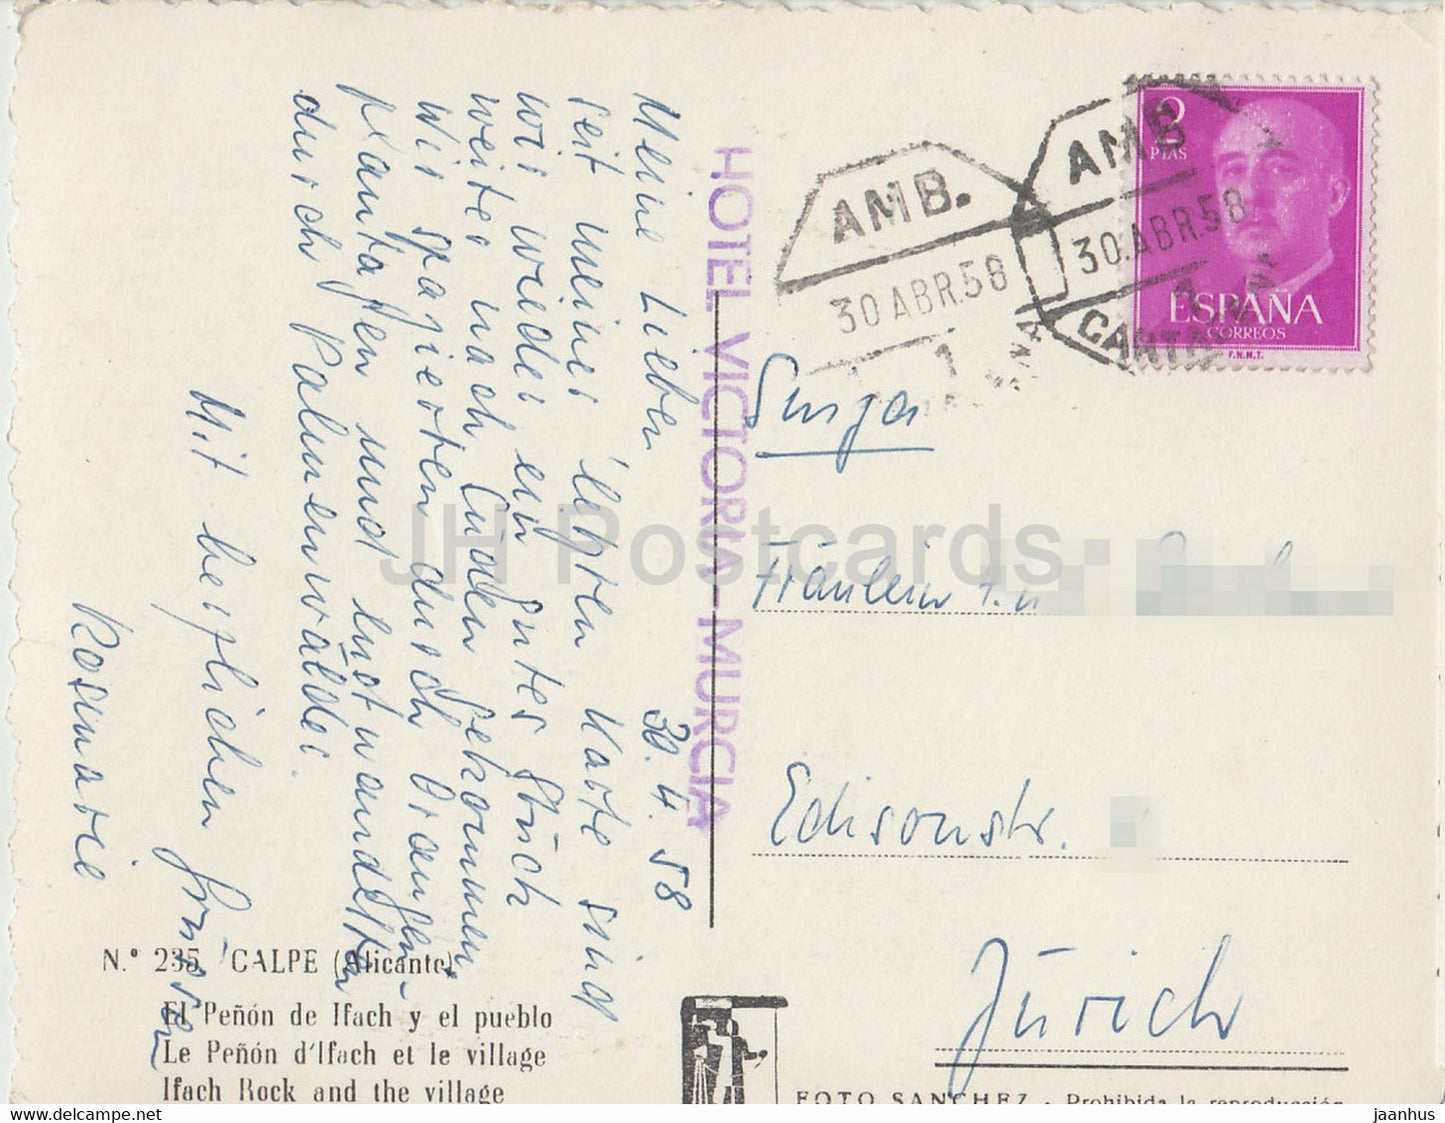 30. 4. 58
Meine Lieben
seit meiner letzten Karte sind
wir wieder ein gutes Stück
weiter nach Süden gekommen
Wir spazierten durch Orangen-
plantagen und lustwandelten
durch Palmenwälder.
Mit herzlichen Grüssen
Rosmarie
HOTEL VICTORIA-MURCIA
AMB.
30 ABR.58
1
AMB
30.ABR.58
1
CARTA
2
PTAS
ESPAÑA
CORREOS
F.N.M.T.
Fräulein
Edisonstr.
Zürich
N.º 235 CALPE (Alicante)
El Peñón de Ifach y el pueblo
Le Peñón d'Ifach et le village
Ifach Rock and the village
FOTO SANCHEZ - Prohibida la reproducción
JH Postcards
www.delcampe.net
jaanhus